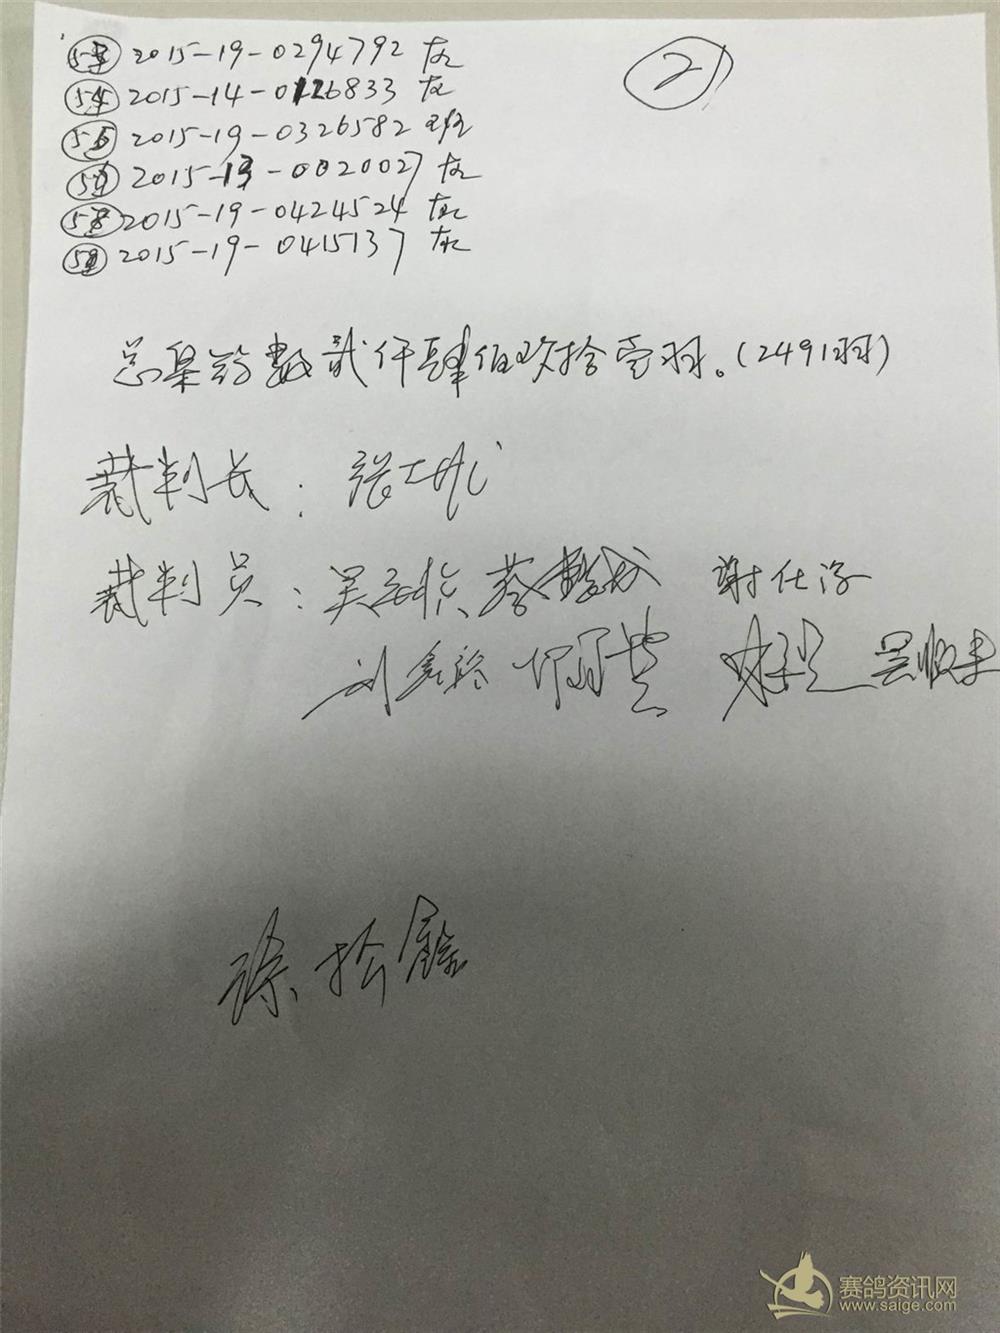 ②
2015-19-0294792 灰
54 2015-14-0126833 灰
2015-19-0326582 斑
2015-13-0020027 灰
58 2015-19-0424524 灰
59 2015-19-0415137 灰
总集鸽数贰仟肆佰玖拾壹羽。(2491羽)
裁判长: 张
裁判员: 吴 蔡 谢仕
刘 吴顺
徐松
赛鸽资讯网
www.saige.com